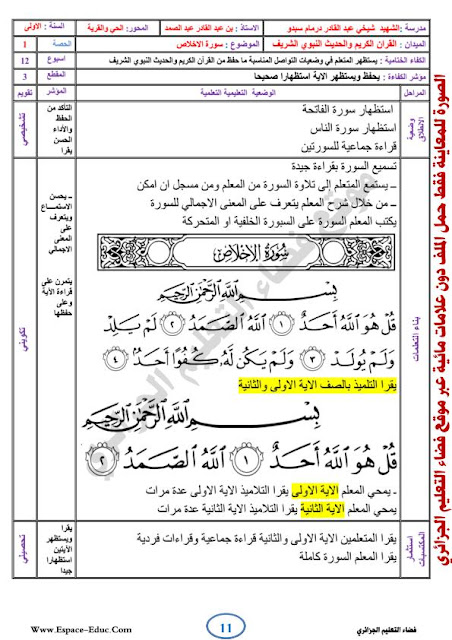 مدرسة :الشهيد شيخي عبد القادر درمام سبدو
الاستاذ : بن عبد القادر عبد الصمد
المحور: الحي والقرية
السنة : الاولى
الميدان : القران الكريم والحديث النبوي الشريف
الموضوع : سورة الاخلاص
الحصة
1
الكفاء الختامية : يستظهر المتعلم في وضعيات التواصل المناسبة ما حفظ من القرآن الكريم والحديث النبوي الشريف
اسبوع
12
مؤشر الكفاءة : يحفظ ويستظهر الاية استظهارا صحيحا
المقطع
3
المراحل
الوضعية التعليمية التعلمية
المؤشر
تقويم
وضعية الانطلاق
استظهار سورة الفاتحة
استظهار سورة الناس
قراءة جماعية للسورتين
التأكد من
الحفظ
والأداء
الحسن
يقرا
تشخيصي
بناء التعلمات
تسميع السورة بقراءة جيدة
ــ يستمع المتعلم إلى تلاوة السورة من المعلم ومن مسجل ان امكن
ــ من خلال شرح المعلم يتعرف على المعنى الاجمالي للسورة
يكتب المعلم السورة على السبورة الخلفية او المتحركة
سُورَةُ الإِخْلَاصِ
بِسْمِ اللَّهِ الرَّحْمَنِ الرَّحِيمِ
قُلْ هُوَ اللَّهُ أَحَدٌ ١ اللَّهُ الصَّمَدُ ٢ لَمْ يَلِدْ
وَلَمْ يُولَدْ ٣ وَلَمْ يَكُن لَّهُ كُفُوًا أَحَدٌ ٤
يقرا التلميذ بالصف الاية الاولى والثانية
بِسْمِ اللَّهِ الرَّحْمَنِ الرَّحِيمِ
قُلْ هُوَ اللَّهُ أَحَدٌ ١ اللَّهُ الصَّمَدُ ٢
ـ يمحي المعلم الاية الاولى يقرا التلاميذ الاية الاولى عدة مرات
يمحي المعلم الاية الثانية يقرا التلاميذ الاية الثانية عدة مرات
ــ يحسن
الاستمــــاع
ويتعرف
على
المعنى
الاجمالي
يتمرن على
قراءة الأية
وعلى
حفظها
تكويني
استثمار
المكتسبات
يقرا المتعلمين الاية الاولى والثانية قراءة جماعية وقراءات فردية
يقرا المعلم السورة كاملة
يقرا
ويستظهر
الأيتين
استظهارا
جيدا
تحصيلي
الصورة للمعاينة فقط حمل الملف دون علامات مائية عبر موقع فضاء التعليم الجزائري
موقع فضاء التعليم الجزائري
فضاء التعليم الجزائري
11
Www.Espace-Educ.Com